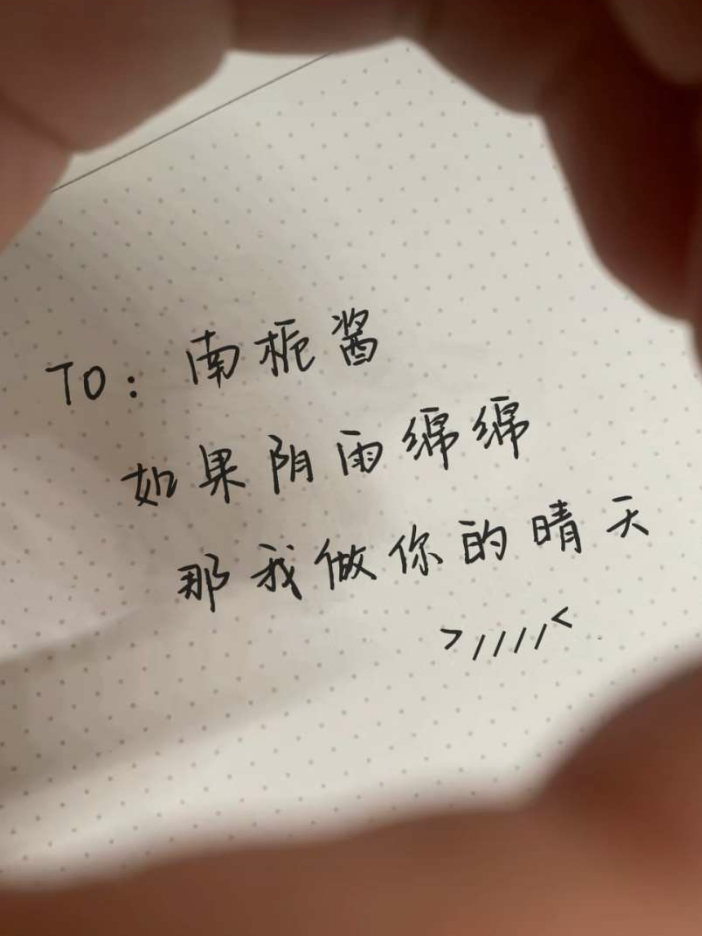 TO：南栀酱
如果阴雨绵绵
那我做你的晴天
>////<